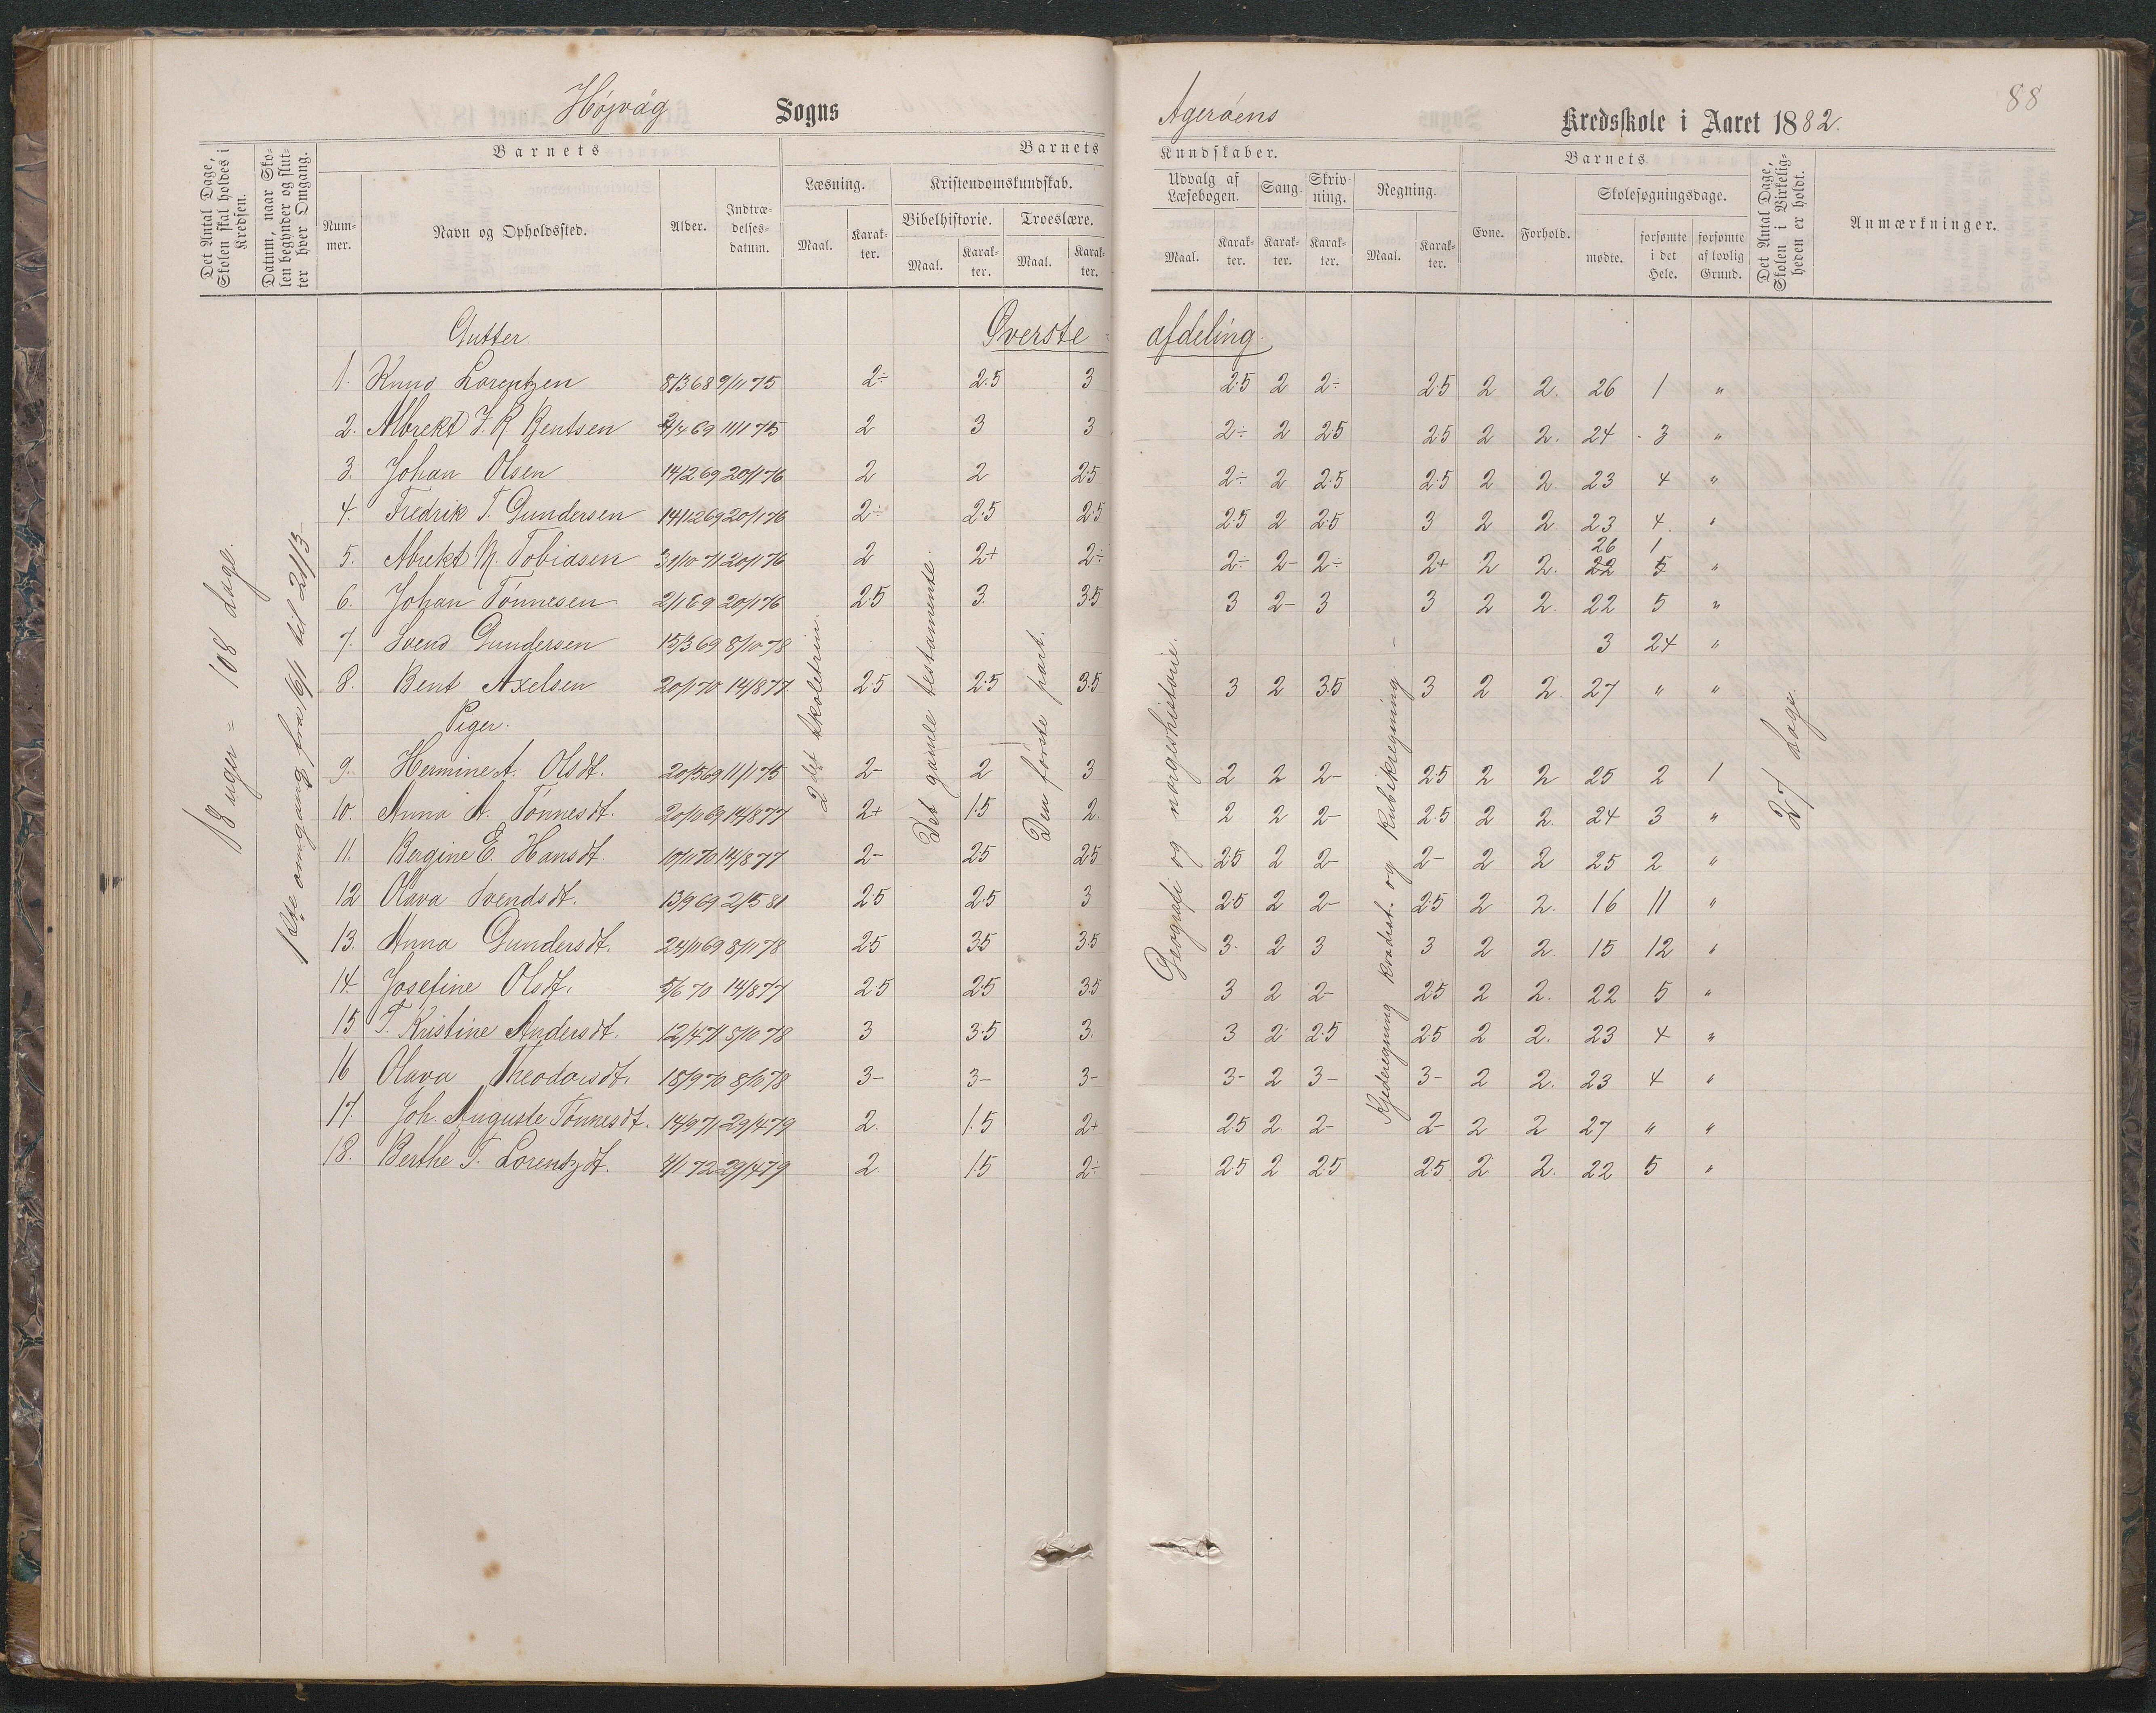 Højvåg Sogns Agerøens Kredsskole i Aaret 1882. 88
Det Antal Dage, Skolen skal holdes i Kredsen.
Datum, naar Skolen begynder og slutter hver Omgang.
Barnets
Nummer.
Navn og Opholdssted.
Alder.
Indtrædelsesdatum.
Barnets Kundskaber.
Læsning.
Maal. Karakter.
Kristendomskundskab.
Bibelhistorie. Troeslære.
Maal. Karakter. Maal. Karakter.
Udvalg af Læsebogen.
Maal. Karakter.
Sang. Karakter.
Skrivning. Karakter.
Regning.
Maal. Karakter.
Barnets
Evne. Forhold.
Skolesøgningsdage.
mødte. forsømte i det Hele. forsømte af lovlig Grund.
Det Antal Dage, Skolen i Virkeligheden er holdt.
Anmærkninger.
18 uger = 108 dage.
1ste omgang fra 16/1 til 21/3
2det skoletrin.
Det gamle testamente.
Den første part.
Geografi og norgeshistorie.
Kjederegning kvadrat. og Kubikregning.
27 dage.
Gutter. Øverste afdeling.
1. Knud Lorentzen 8/3 68 9/11 75 2÷ 2.5 3 2.5 2 2÷ 2.5 2 2. 26 1 "
2. Albrekt J. R. Bentsen /4 69 11/1 75 2 3 3 2÷ 2 2.5 2.5 2 2. 24 3 "
3. Johan Olsen 14/2 69 20/1 76 2 2 2.5 2÷ 2 2.5 2.5 2 2. 23 4 "
4. Fredrik T. Gundersen 14/12 69 20/1 76 2÷ 2.5 2.5 2.5 2 2.5 3 2 2 23 4. "
26 1
5. Abrekt N. Tobiasen 31/10 71 20/1 76 2 2+ 2÷ 2÷ 2- 2÷ 2+ 2 2. 22 5 "
6. Johan Tønnesen 2/1 69 20/1 76 2.5 3. 3.5 3 2- 3 3 2 2. 22 5 "
7. Svend Gundersen 15/3 69 8/10 78 3 24 "
8. Bent Axelsen 20/1 70 14/8 77 2.5 2.5 3.5 3 2 3.5 3 2 2. 27 " "
Piger.
9. Hermine A. Olsdt. 20/3 69 11/1 75 2- 2 3 2 2 2- 2.5 2 2 25 2 1
10. Anna A. Tønnesdt. 20/10 69 14/8 77 2+ 1.5 2. 2 2 2- 2.5 2 2. 24 3 "
11. Bergine E. Hansdt. 10/11 70 14/8 77 2- 2.5 2.5 2.5 2 2- 2- 2 2 25 2 "
12 Olava Svendsdt. 13/9 69 2/5 81 2.5 2.5 3 2.5 2 2- 2.5 2 2. 16 11 "
13. Anna Gundersdt. 24/11 69 8/11 78 2.5 3.5 3.5 3. 2 3 3 2 2. 15 12 "
14. Josefine Olsdt. 5/6 70 14/8 77 2.5 2.5 3.5 3 2 2- 2.5 2 2. 22 5 "
15. T. Kristine Andersdt. 12/4 71 8/10 78 3 3.5 3. 3 2 2.5 2.5 2 2. 23 4 "
16 Olava Theodorsdt. 18/9 70 8/10 78 3- 3- 3- 3- 2 3- 3- 2 2. 23 4 "
17. Joh. Auguste Tønnesdt. 14/9 71 29/4 79 2. 1.5 2+ 2.5 2 2- 2- 2 2 27 " "
18. Berthe T. Lorentzdt. 4/1 72 29/4 79 2. 1.5 2÷ 2.5 2 2.5 2.5 2 2. 22 5 "